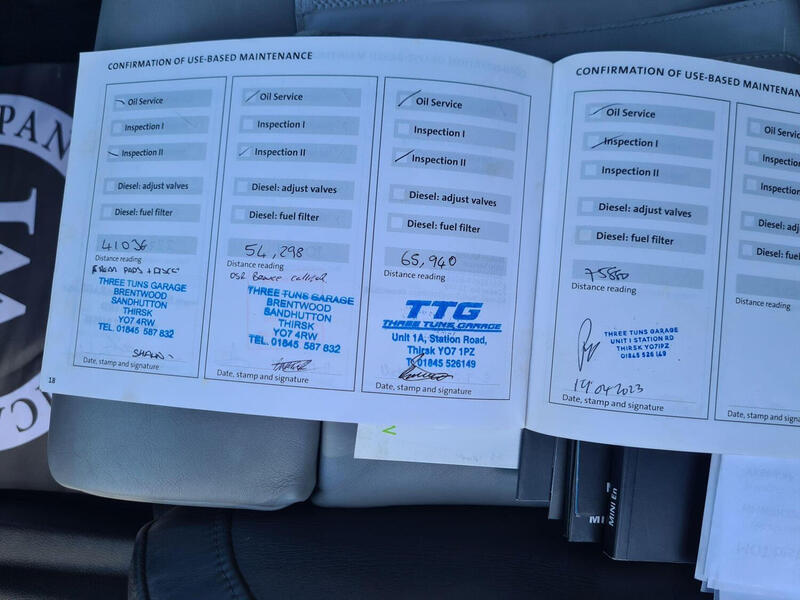 CONFIRMATION OF USE-BASED MAINTENANCE
Oil Service
Inspection I
Inspection II
Diesel: adjust valves
Diesel: fuel filter
41036
Distance reading
PADS + DISCS
THREE TUNS GARAGE
BRENTWOOD
SANDHUTTON
THIRSK
YO7 4RW
TEL. 01845 587 832
Date, stamp and signature
18
Oil Service
Inspection I
Inspection II
Diesel: adjust valves
Diesel: fuel filter
54,298
Distance reading
OSR BRAKE CALIPER
THREE TUNS GARAGE
BRENTWOOD
SANDHUTTON
THIRSK
YO7 4RW
TEL. 01845 587 832
Date, stamp and signature
Oil Service
Inspection I
Inspection II
Diesel: adjust valves
Diesel: fuel filter
65,940
Distance reading
TTG
THREE TUNS GARAGE
Unit 1A, Station Road,
Thirsk YO7 1PZ
T: 01845 526149
Date, stamp and signature
CONFIRMATION OF USE-BASED MAINTENAN
Oil Service
Inspection I
Inspection II
Diesel: adjust valves
Diesel: fuel filter
75880
Distance reading
THREE TUNS GARAGE
UNIT 1 STATION RD
THIRSK YO71PZ
01845 526 149
19 04 2023
Date, stamp and signature
Oil Servic
Inspection
Inspection
Diesel: adj
Diesel: fuel
Distance reading
Date, stamp and sig
PAN
CA
MINI En
MI